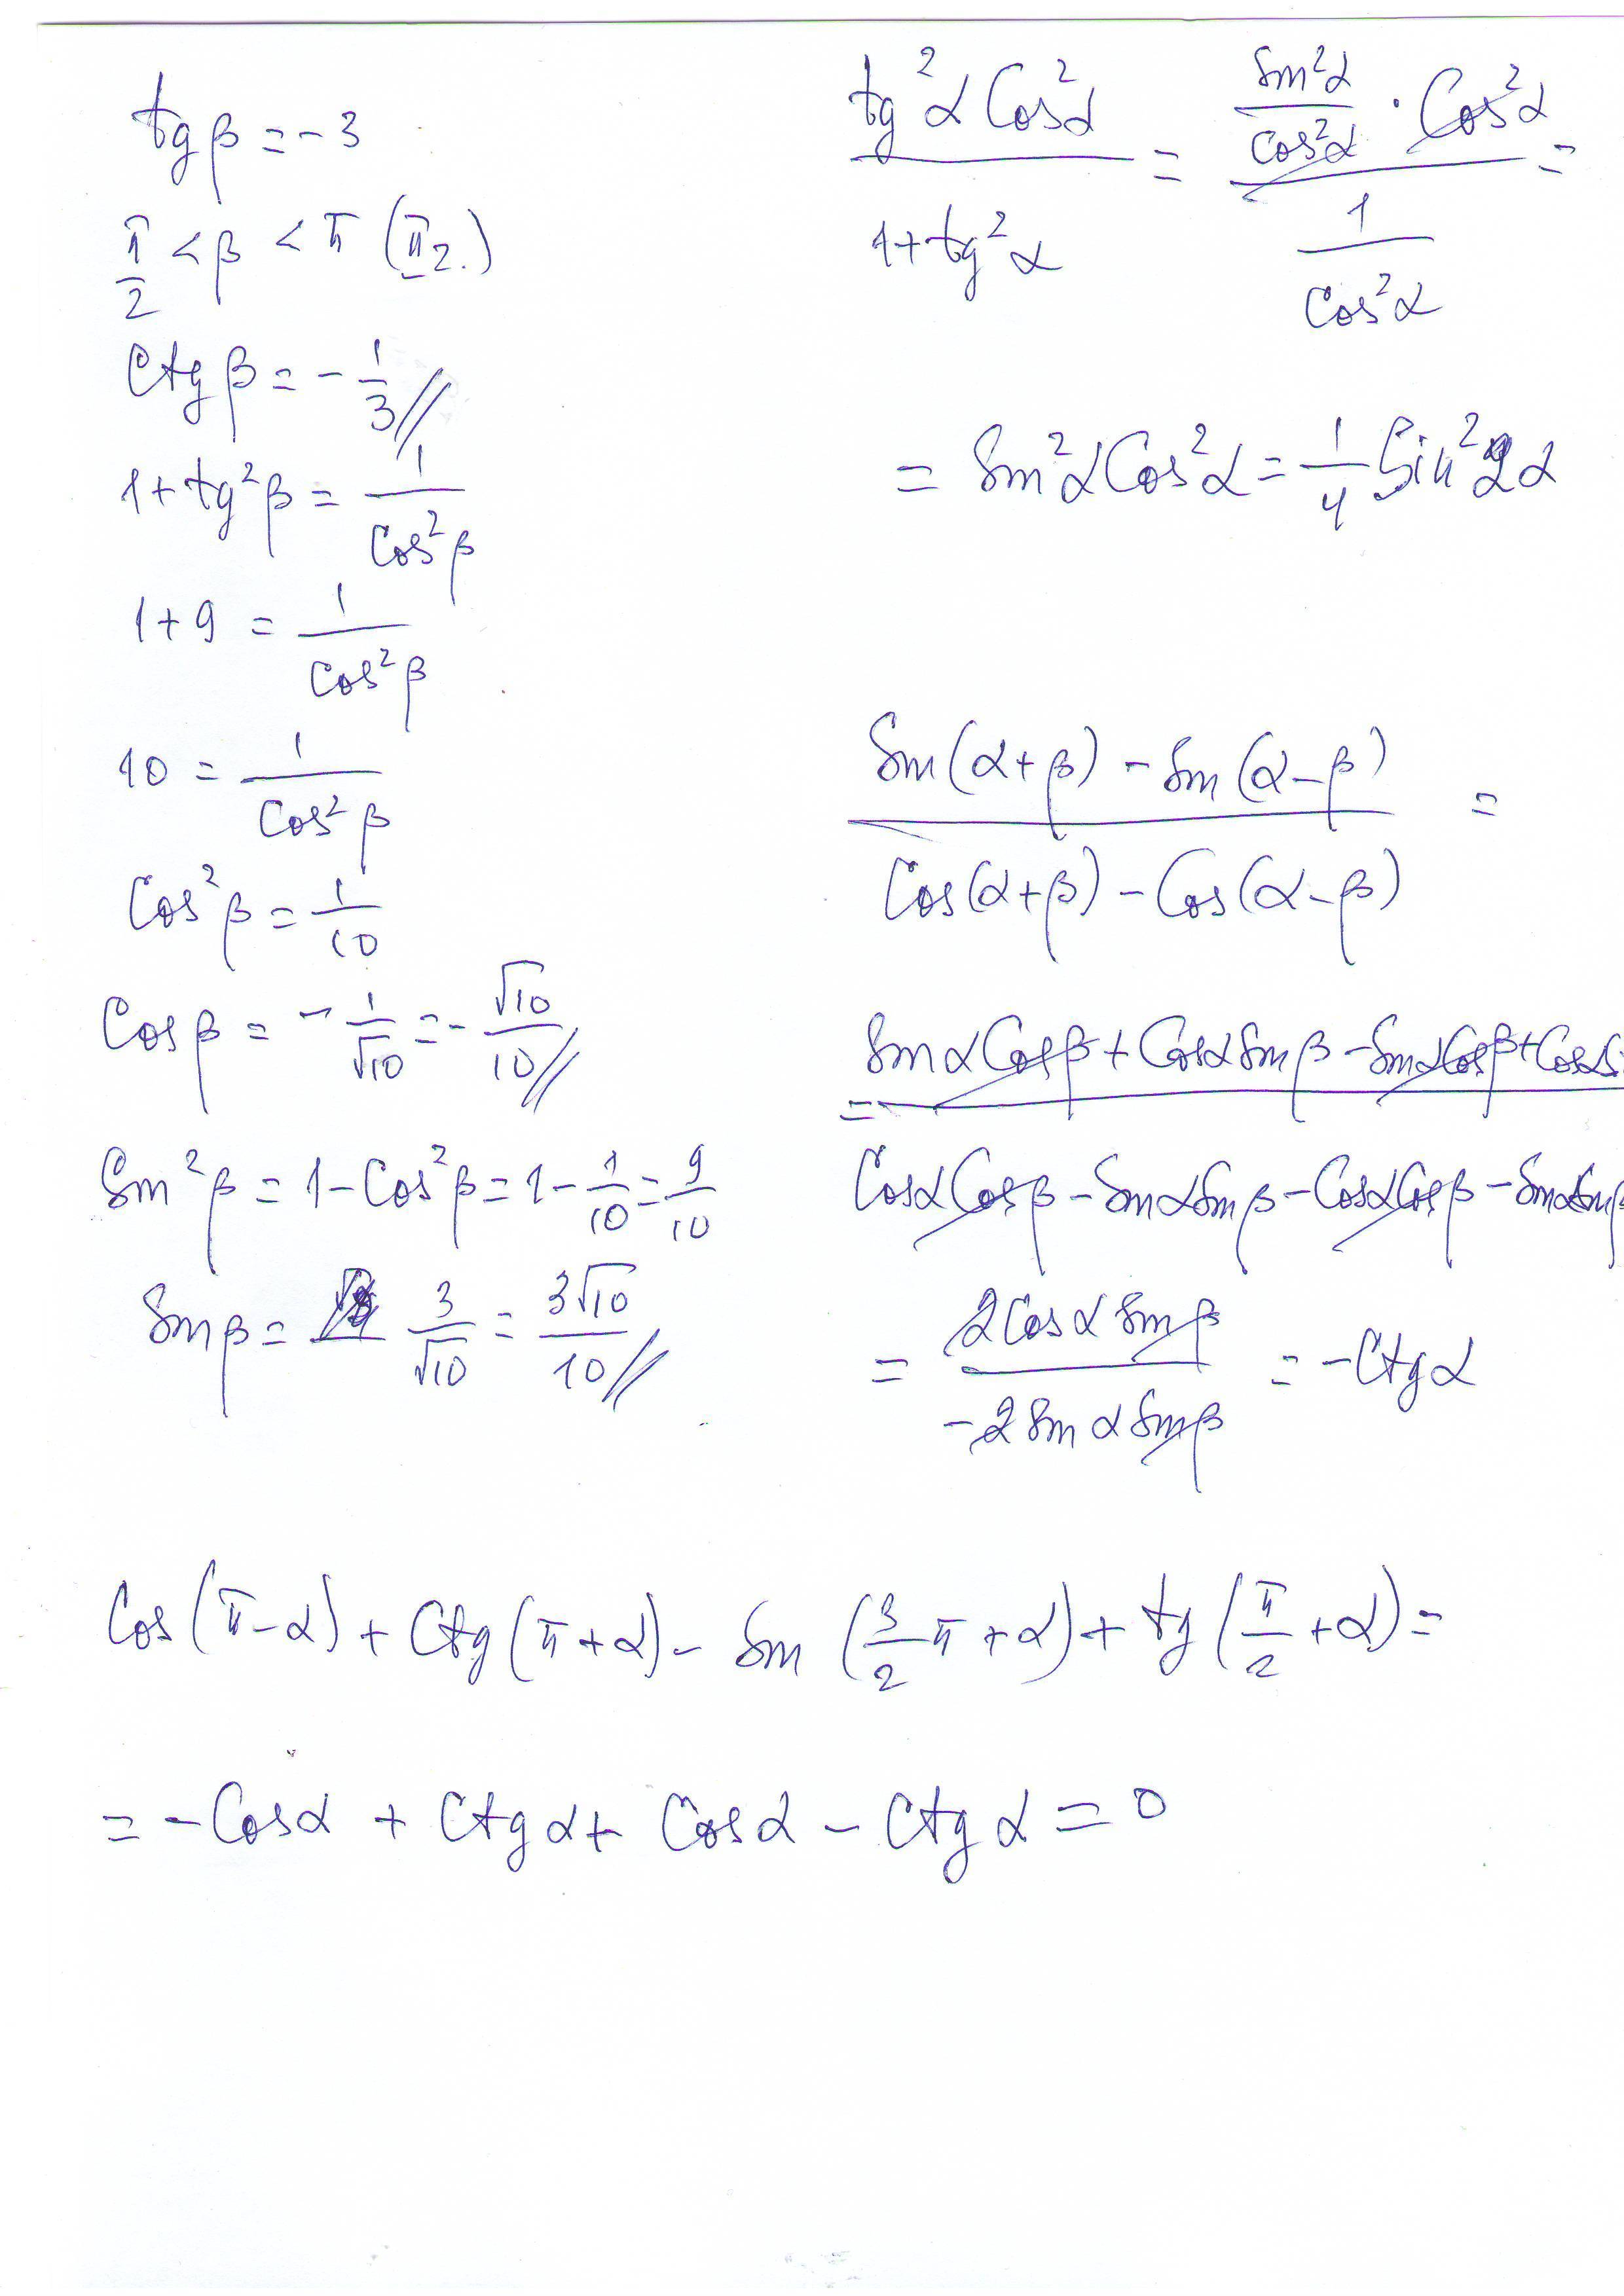 tg β = -3
π/2 < β < π (π 2.)
Ctg β = - 1/3 //
1 + tg²β = 1/Cos²β
1 + 9 = 1/Cos²β
10 = 1/Cos²β
Cos²β = 1/10
Cos β = - 1/√10 = - √10/10 //
Sin²β = 1 - Cos²β = 1 - 1/10 = 9/10
Sin β = 3/√10 = 3√10/10 //
tg²α Cos²α / 1 + tg²α = Sin²α/Cos²α · Cos²α / 1/Cos²α =
= Sin²α Cos²α = 1/4 Sin²2α
Sin(α+β) - Sin(α-β) / Cos(α+β) - Cos(α-β) =
= Sinα Cosβ + Cosα Sinβ - Sinα Cosβ + Cosα Si / Cosα Cosβ - Sinα Sinβ - Cosα Cosβ - Sinα Sinβ
= 2Cosα Sinβ / -2Sinα Sinβ = -Ctgα
Cos(π-α) + Ctg(π+α) - Sin(3/2 π + α) + tg(π/2 + α) =
= -Cosα + Ctgα + Cosα - Ctgα = 0